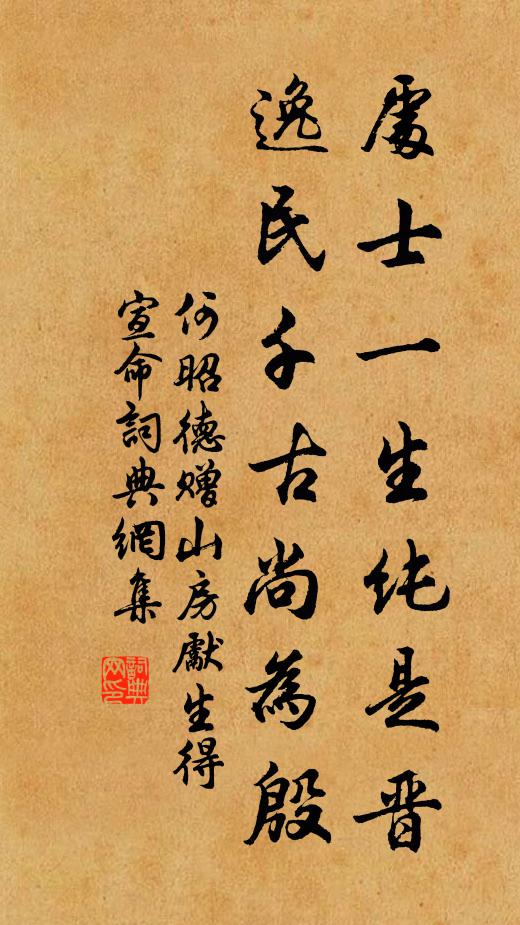 處士一生純是晋
逸民千古尚為殷
何昭德贈山房獻生得
宣命詞典網集
詞典
网印